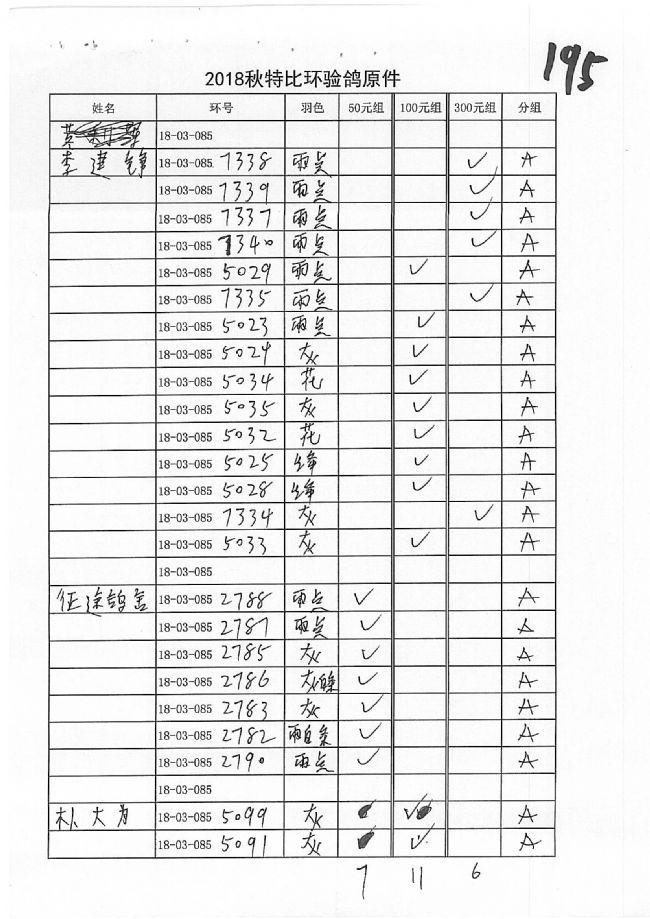 195
2018秋特比环验鸽原件
姓名 环号 羽色 50元组 100元组 300元组 分组
18-03-085
李建锋 18-03-085 7338 雨点 ✓ A
18-03-085 7339 雨点 ✓ A
18-03-085 7337 雨点 ✓ A
18-03-085 7340 雨点 ✓ A
18-03-085 5029 雨点 ✓ A
18-03-085 7335 雨点 ✓ A
18-03-085 5023 雨点 ✓ A
18-03-085 5024 灰 ✓ A
18-03-085 5034 花 ✓ A
18-03-085 5035 灰 ✓ A
18-03-085 5032 花 ✓ A
18-03-085 5025 绛 ✓ A
18-03-085 5028 绛 ✓ A
18-03-085 7334 灰 ✓ A
18-03-085 5033 灰 ✓ A
18-03-085
征途鸽舍 18-03-085 2788 雨点 ✓ A
18-03-085 2787 雨点 ✓ A
18-03-085 2785 灰 ✓ A
18-03-085 2786 灰白条 ✓ A
18-03-085 2783 灰 ✓ A
18-03-085 2782 雨白条 ✓ A
18-03-085 2790 雨点 ✓ A
18-03-085
朴大为 18-03-085 5099 灰 ✓ A
18-03-085 5091 灰 ✓ A
7 11 6